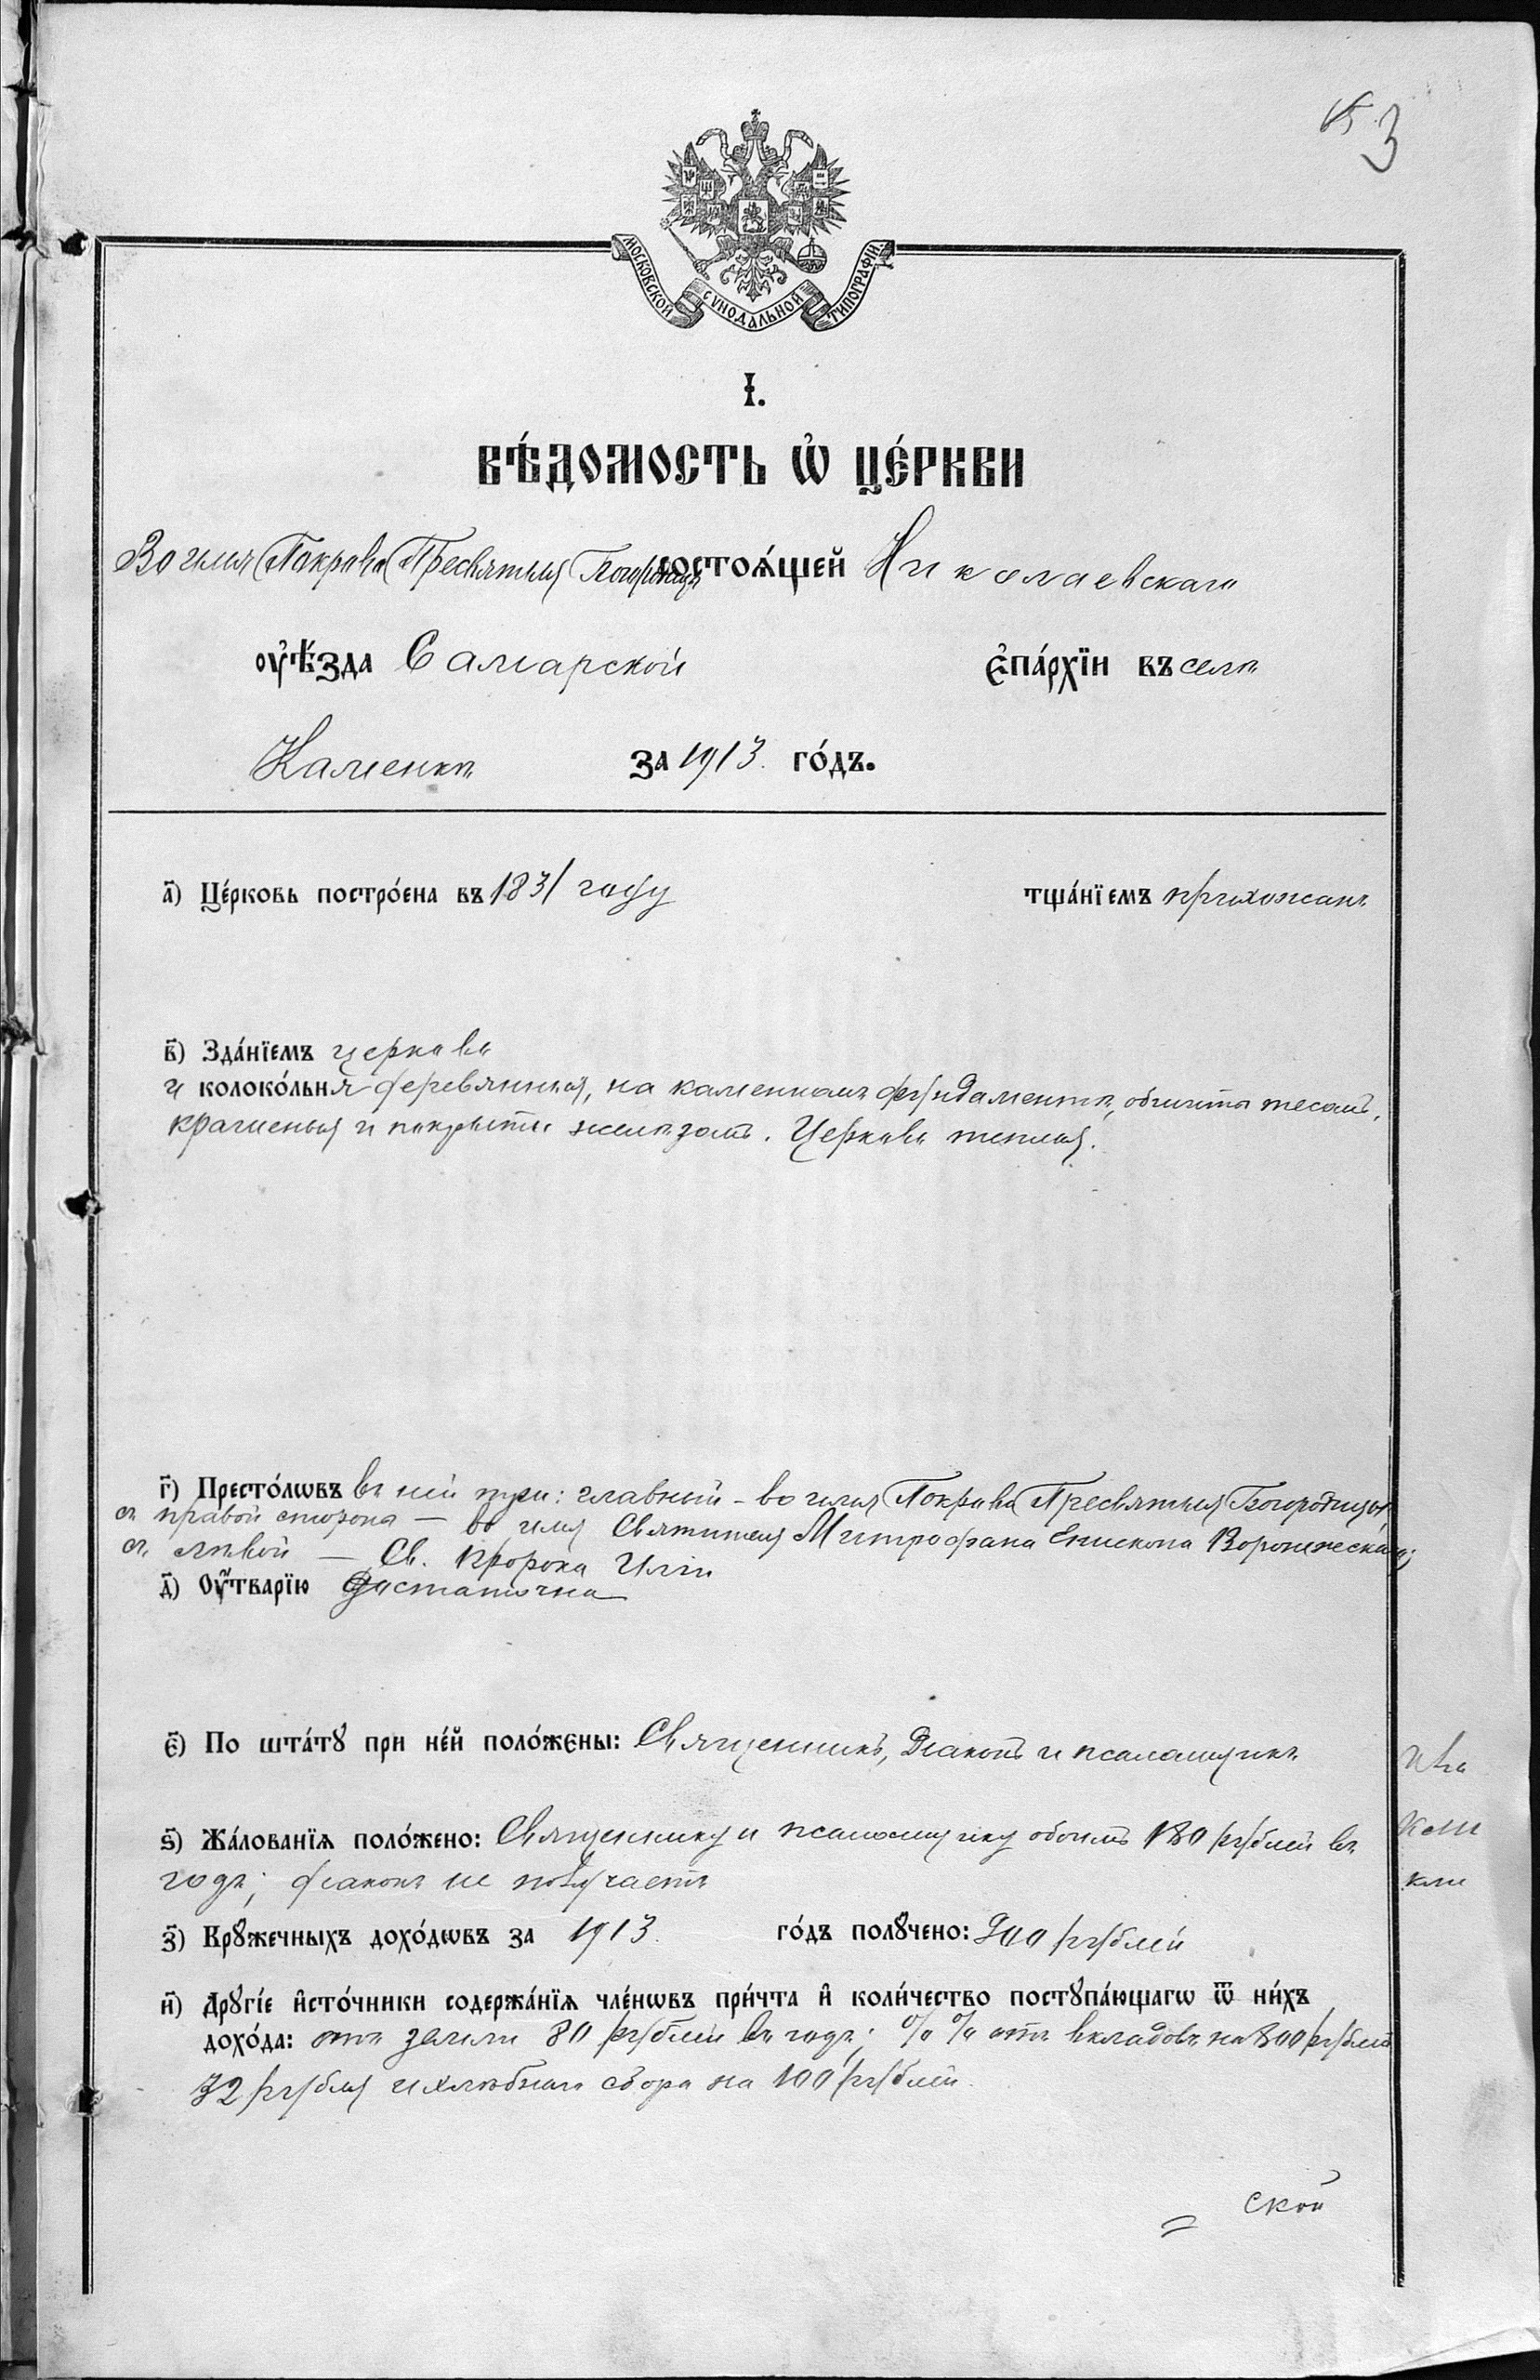 3
МОСКОВСКОЙ СѴНОДАЛЬНОЙ ТИПОГРАФІИ.
І.
Вѣ́домость ѡ҆ це́ркви
Во имя Покрова Пресвятыя Богородицы состоѧ́щей Николаевскаго
ᲂу҆ѣ́зда Самарской є҆па́рхїи въ селѣ
Каменкѣ за 1913 го́дъ.
а҃) Це́рковь постро́ена въ 1831 году тща́нїемъ прихожанъ
в҃) Зда́нїемъ церковь
и колоко́льня деревянныя, на каменномъ фундаментѣ, обшиты тесомъ,
крашеныя и покрыты желѣзомъ. Церковь теплая.
г҃) Престо́лѡвъ въ ней три: главный – во имя Покрова Пресвятыя Богородицы
съ правой стороны – во имя Святителя Митрофана Епископа Воронежскаго;
съ лѣвой – Св. Пророка Иліи
д҃) Оу҆́тварїю достаточна
є҃) По шта́тꙋ при не́й поло́жены: Священникъ, Діаконъ и псаломщикъ
ѕ҃) Жа́лованїѧ поло́жено: Священнику и псаломщику обоимъ 180 рублей въ
годъ; діаконъ не получаетъ
з҃) Крꙋ́жечныхъ дохо́дѡвъ за 1913 го́дъ полꙋ́чено: 900 рублей
и҃) Дрꙋгі́е и҆сто́чники содержа́нїѧ чле́нѡвъ при́чта и҆ коли́чество постꙋпа́ющагѡ ѿ ни́хъ
дохо́да: отъ земли 80 рублей въ годъ; % % отъ вкладовъ на 800 рублей
32 рубля и хлѣбнаго сбора на 100 рублей.
ской